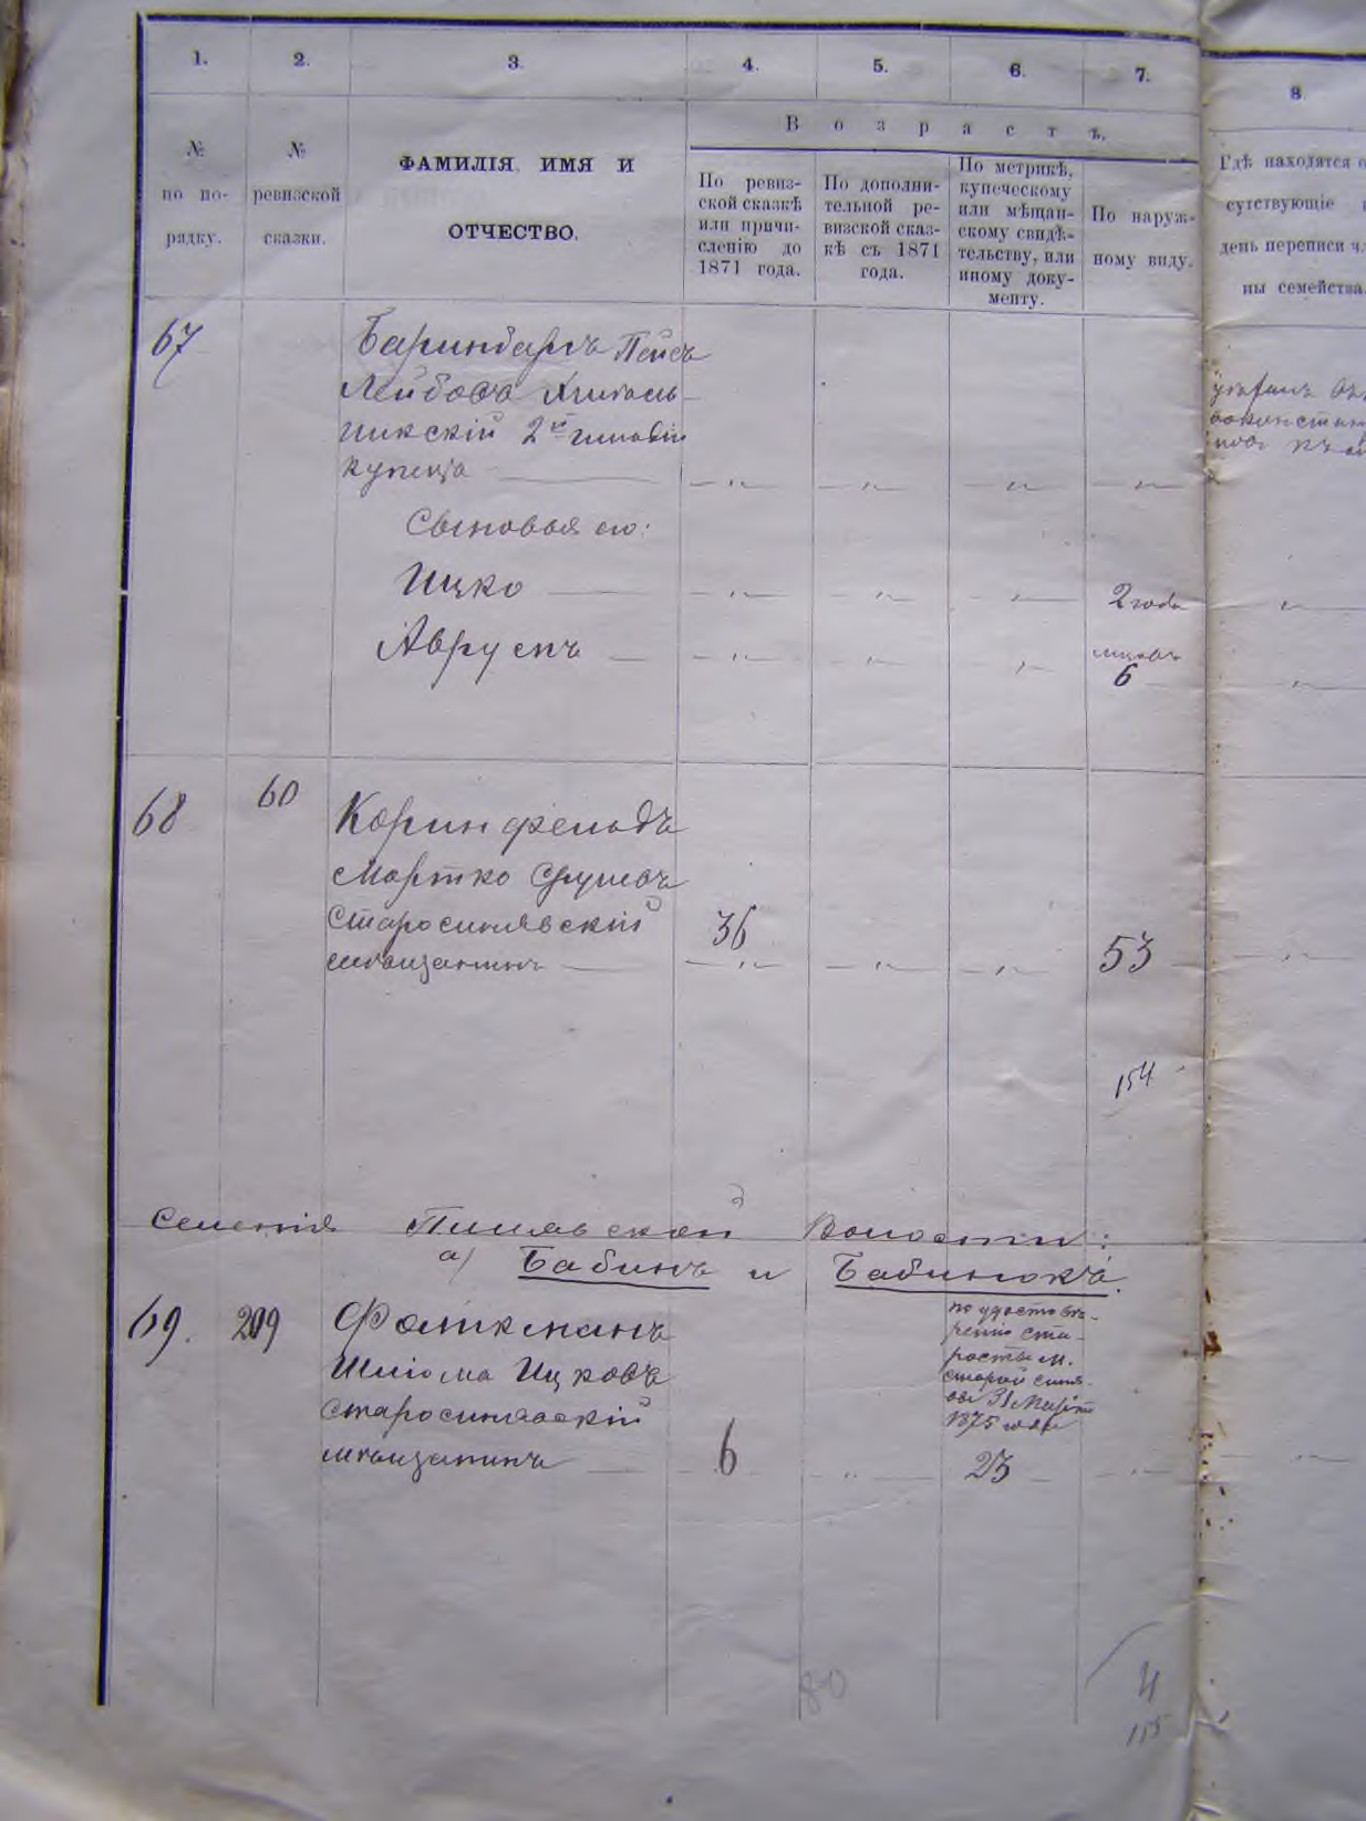 1. 2. 3. 4. 5. 6. 7. 8
Возрастъ.
№ по по-рядку.
№ ревизской сказки.
ФАМИЛІЯ, ИМЯ И
ОТЧЕСТВО.
По ревиз-
ской сказкѣ
или причи-
сленію до
1871 года.
По дополни-
тельной ре-
визской сказ-
кѣ съ 1871
года.
По метрикѣ,
купеческому
или мѣщан-
скому свидѣ-
тельству, или
иному доку-
менту.
По наруж-
ному виду.
Гдѣ находятся о
сутствующіе
день переписи чл
ны семейства.
67
Лейбовъ
2й гильдіи
купецъ
Сыновья его:
Ицко 2 года
Аврумъ 6
68 60 Коринфельдъ
Мортко
Старосинявскій
мѣщанинъ 36 53
154
Селенія Пилявской Волости:
а) Бабинъ и Бабинокъ.
69. 209 Фаткманъ
Шлiома Ицковъ
старосинявскій
мѣщанинъ 6
по удостовѣ-
ренію ста-
росты м.
старой синя-
вы 31 Марта
1875 года
23
80
4
155